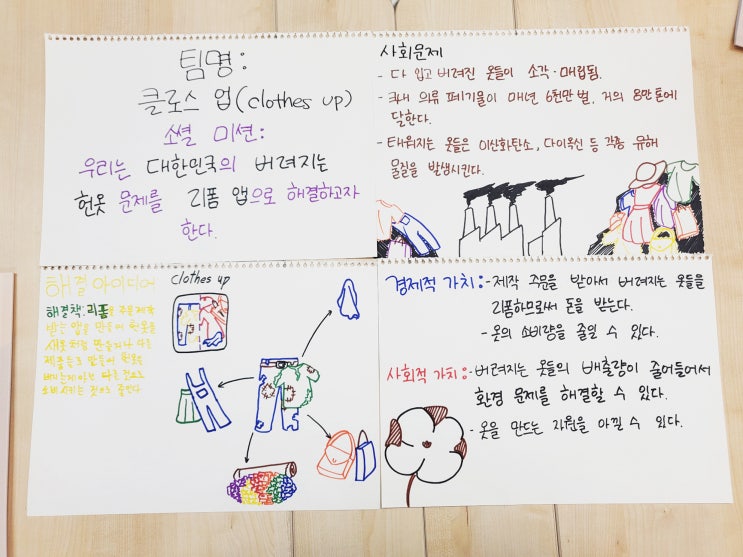 팀명:
클로스 업(clothes up)
소셜 미션:
우리는 대한민국의 버려지는
헌옷 문제를 리폼 앱으로 해결하고자
한다.
사회문제
- 다 입고 버려진 옷들이 소각·매립됨.
- 국내 의류 폐기물이 매년 6천만 벌, 거의 8만 톤에
달한다.
- 태워지는 옷들은 이산화탄소, 다이옥신 등 각종 유해
물질을 발생시킨다.
해결 아이디어
해결책: 리폼을 주문제작
받는 앱을 만들어 헌옷을
새옷처럼 만들거나 다른
제품등으로 만들어 헌옷을
다른 것으로
것으로 줄인다
clothes up
경제적 가치: - 제작 주문을 받아서 버려지는 옷들을
리폼하므로써 돈을 받는다.
- 옷의 소비량을 줄일 수 있다.
사회적 가치: - 버려지는 옷들의 배출량이 줄어들어서
환경 문제를 해결할 수 있다.
- 옷을 만드는 자원을 아낄 수 있다.